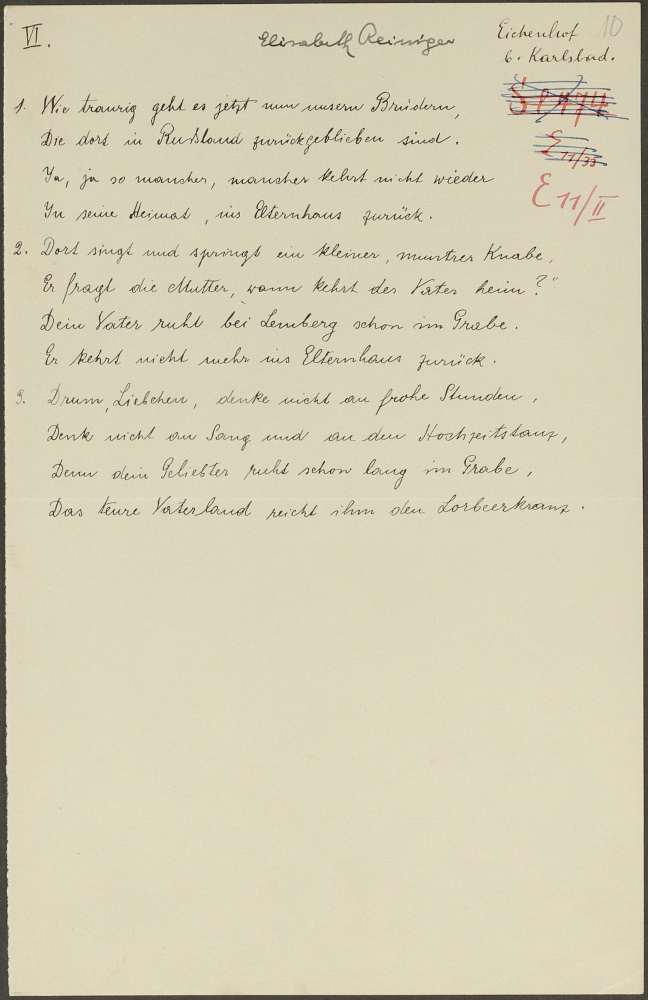 VI.
Elisabeth Reiniger
Eichenhof 10
b. Karlsbad.
E 11/33
E 11/II
1. Wie traurig geht es jetzt nun unsern Brüdern,
Die dort in Rußland zurückgeblieben sind.
Ja, ja so mancher, mancher kehrt nicht wieder
In seine Heimat, ins Elternhaus zurück.
2. Dort singt und springt ein kleiner, muntrer Knabe,
Er fragt die Mutter, wann kehrt der Vater heim?"
Dein Vater ruht bei Lemberg schon im Grabe.
Er kehrt nicht mehr ins Elternhaus zurück.
3. Drum, Liebchen, denke nicht an frohe Stunden,
Denk nicht an Sang und an den Hochzeitstanz,
Denn dein Geliebter ruht schon lang im Grabe,
Das teure Vaterland reicht ihm den Lorbeerkranz.